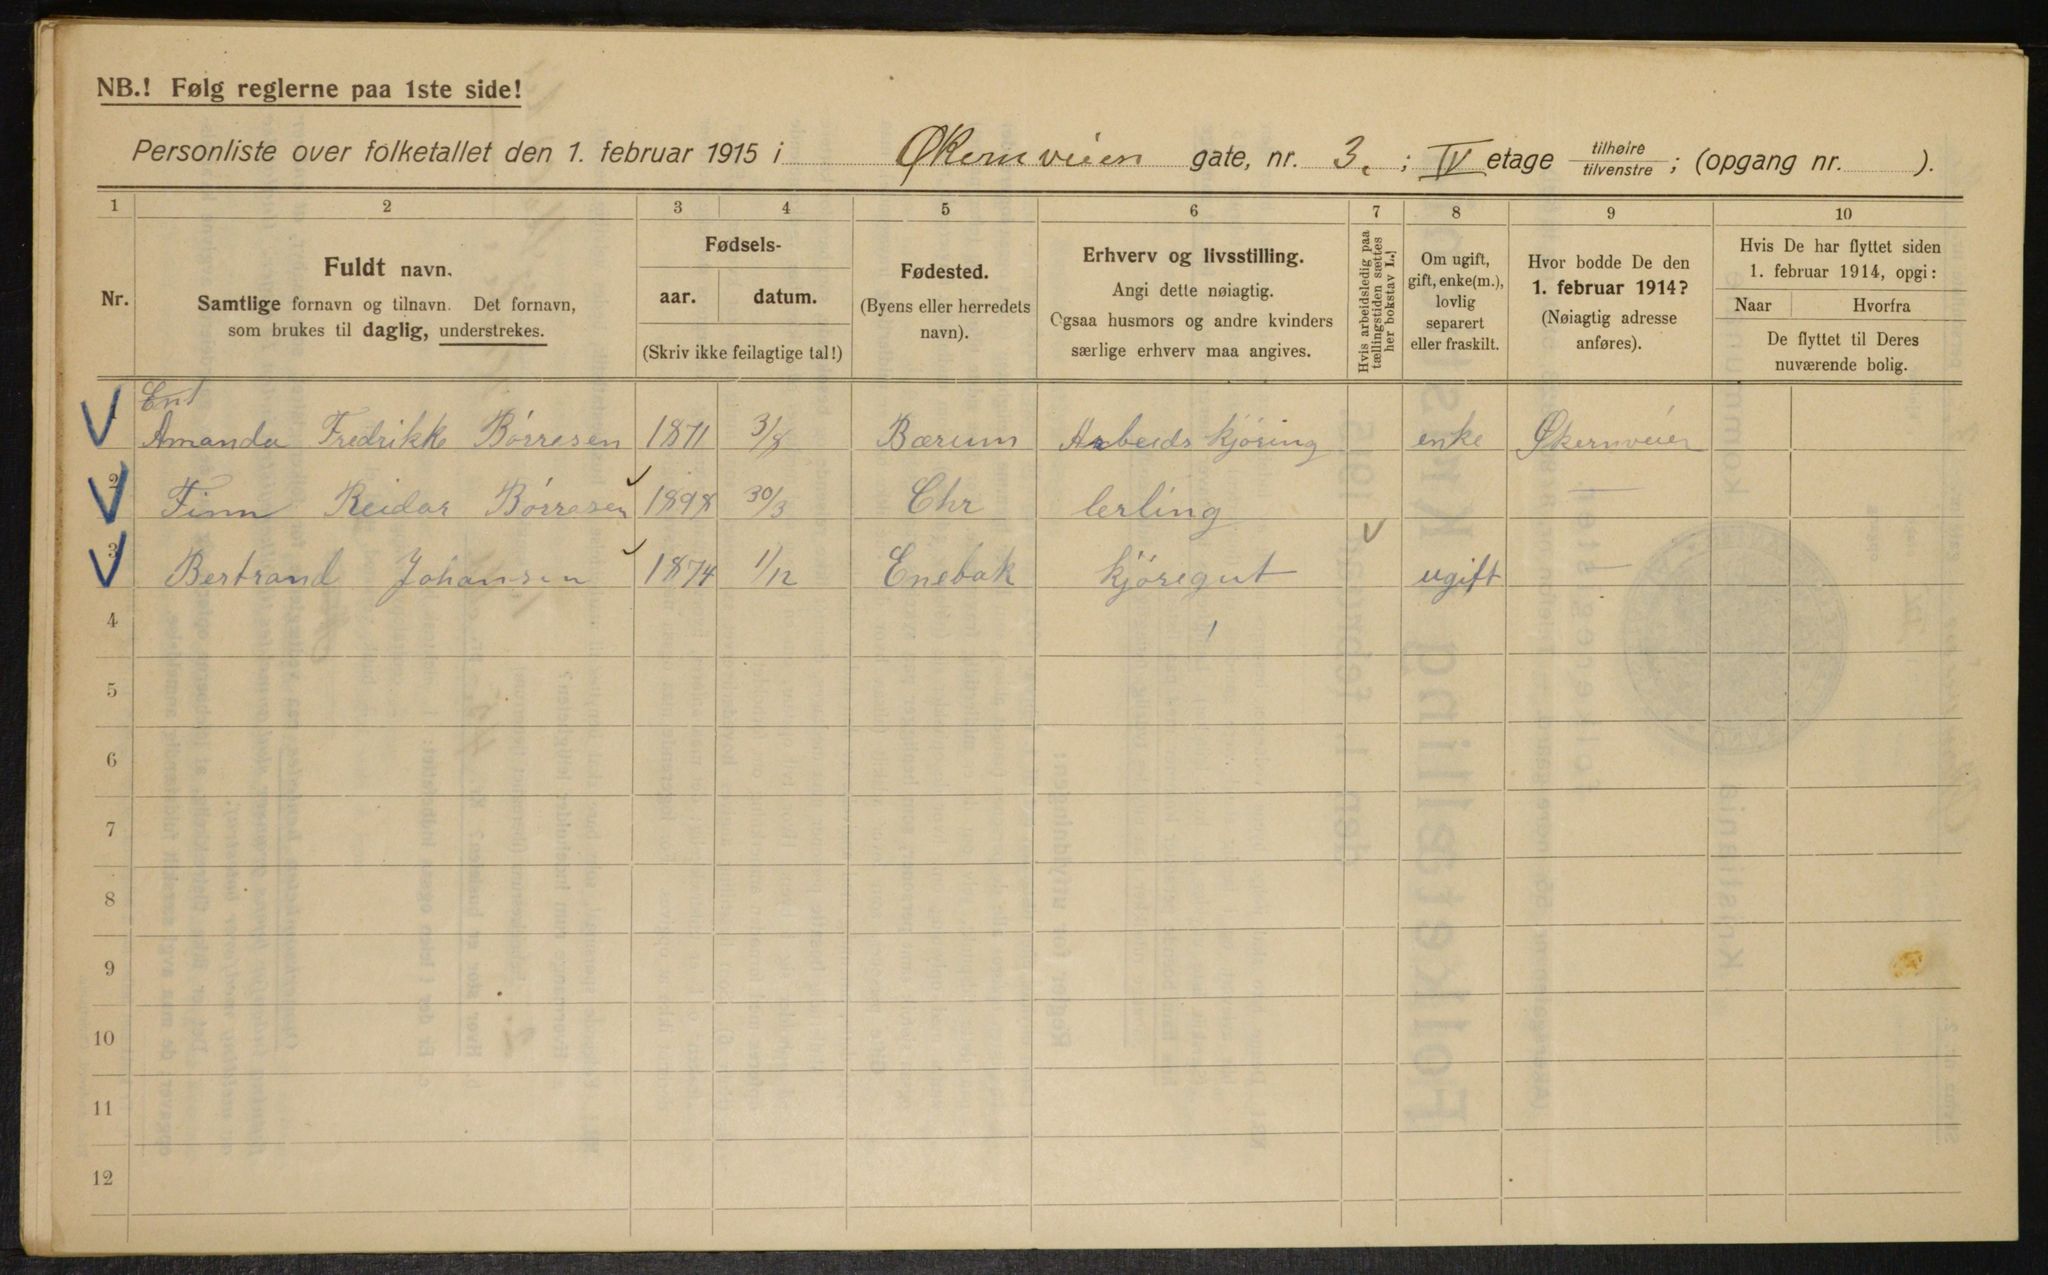 NB.! Følg reglerne paa 1ste side!
Personliste over folketallet den 1. februar 1915 i Økernveien gate, nr. 3. ; IV etage tilhøire/tilvenstre ; (opgang nr. ).
1 2 3 4 5 6 7 8 9 10
Nr.
Fuldt navn.
Samtlige fornavn og tilnavn. Det fornavn,
som brukes til daglig, understrekes.
Fødsels-
aar. datum.
(Skriv ikke feilagtige tal!)
Fødested.
(Byens eller herredets
navn).
Erhverv og livsstilling.
Angi dette nøiagtig.
Ogsaa husmors og andre kvinders
særlige erhverv maa angives.
Hvis arbeidsledig paa
tællingstiden sættes
her bokstav L.)
Om ugift,
gift, enke(m.),
lovlig
separert
eller fraskilt.
Hvor bodde De den
1. februar 1914?
(Nøiagtig adresse
anføres).
Hvis De har flyttet siden
1. februar 1914, opgi:
Naar Hvorfra
De flyttet til Deres
nuværende bolig.
Enk
1 Amanda Fredrikke Börresen 1871 3/8 Bærum Arbeids kjöring enke Økernveien
2 Finn Reidar Börresen 1898 30/3 Chr lerling —
3 Bertrand Johansen 1874 1/12 Enebak kjöregut ugift —
4
5
6
7
8
9
10
11
12